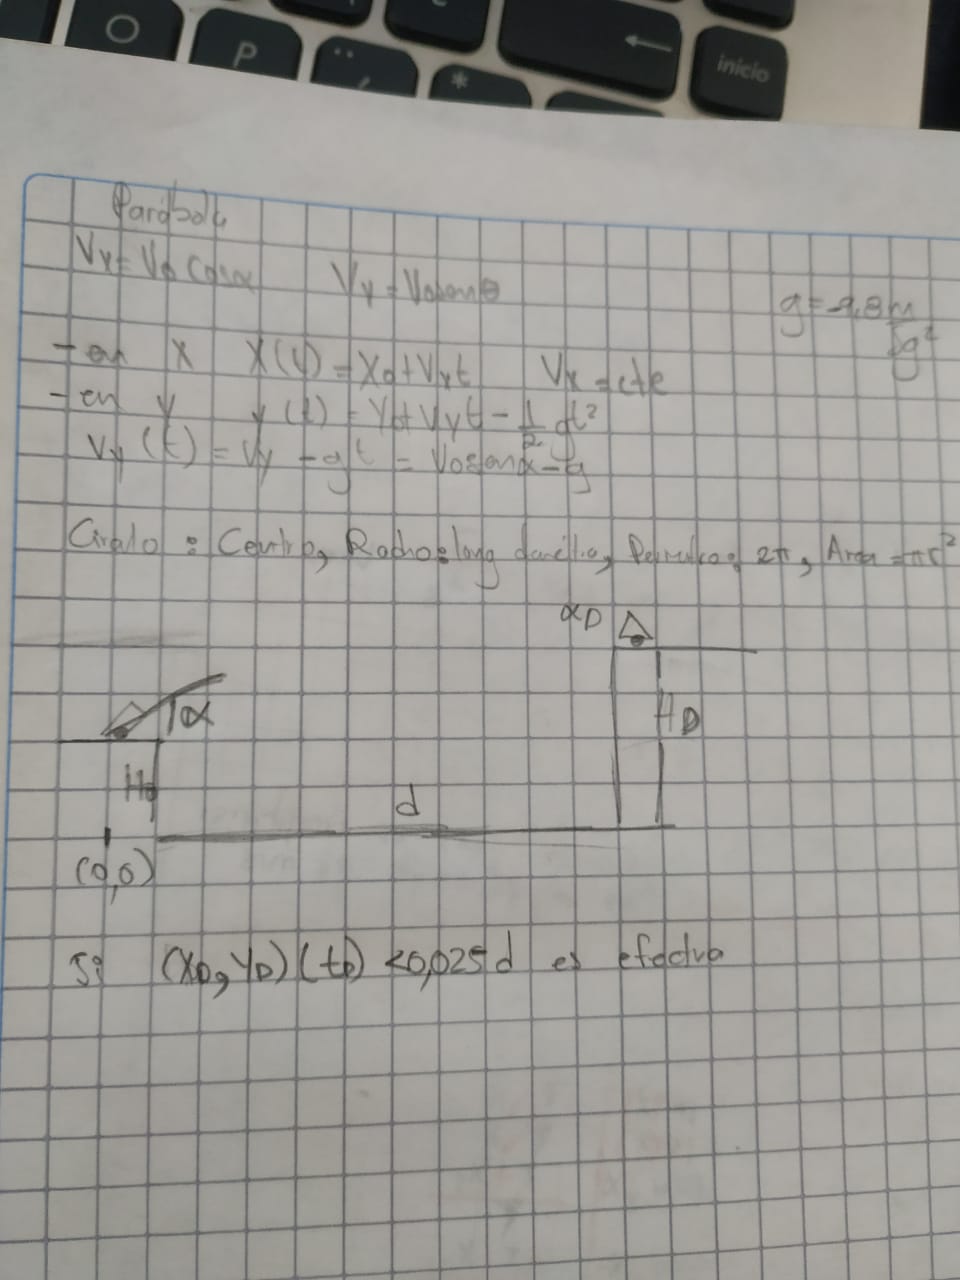 O
P
*
inicio
Parábola
Vx = Vo Cosα Vy = Vosenθ
g = -9.8 m
sg²
- en X X(t) = Xo + Vxt Vx = cte
- en y y(t) = Yo + Vyt - 1/2 gt²
Vy (t) = Vy - gt = Vosenα - g
Circulo : Centro, Radio = long 2π, Area = πr²
αD
α
HD
Ho
d
(0,0)
Si (XD, YD) (tD) <0,025 d es efectiva